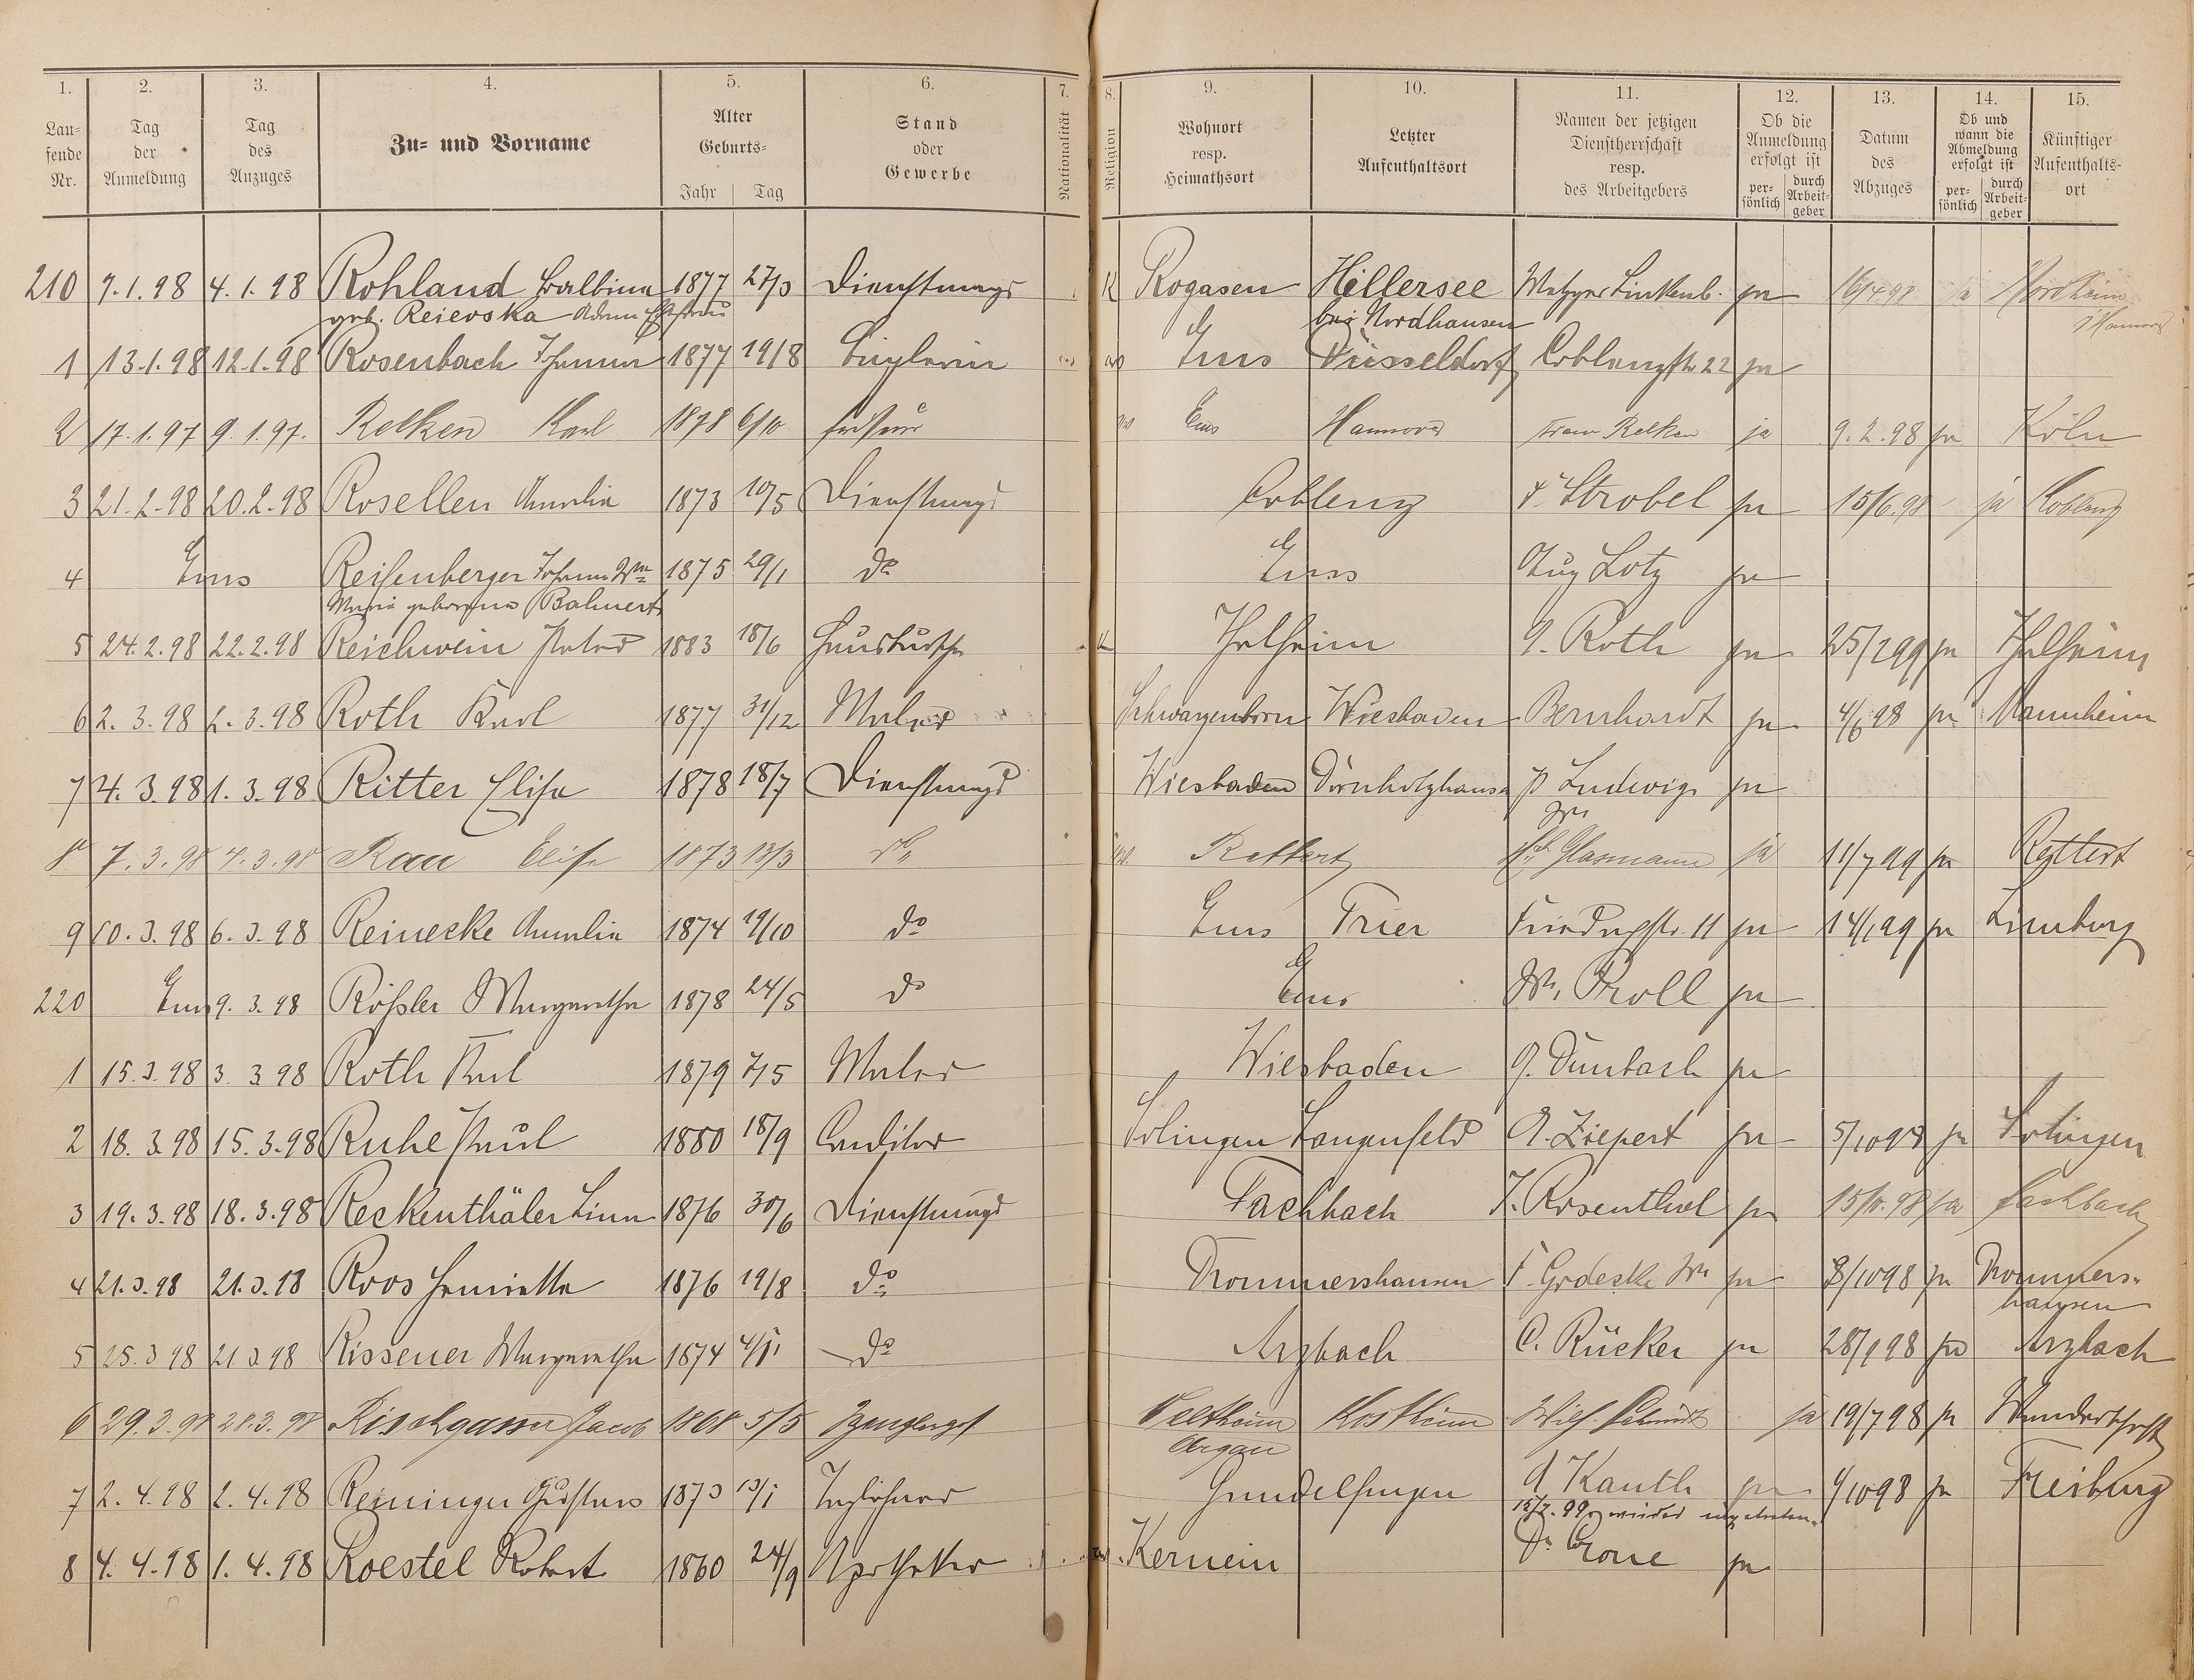 1. 2. 3. 4. 5. 6. 7. 8. 9. 10. 11. 12. 13. 14. 15.
Lau-fende Nr. Tag der Anmeldung Tag des Anzuges Zu- und Vorname Alter Geburts- Jahr Tag Stand oder Gewerbe Nationalität Religion Wohnort resp. Heimathsort Letzter Aufenthaltsort Namen der jetzigen Dienstherrschaft resp. des Arbeitgebers Ob die Anmeldung erfolgt ist per-sönlich durch Arbeit-geber Datum des Abzuges Ob und wann die Abmeldung erfolgt ist per-sönlich durch Arbeit-geber Künftiger Aufenthalts-ort
210 7.1.98 4.1.98 Rohland Balbina 1877 27/3 Dienstmagd K Rogasen Hillersee Metzger Linkenb. ja 16/4 98 ja Nordheim
geb. Reievska Ehefrau bei Nordhausen i Hannov
1 13.1.98 12.1.98 Rosenbach Johanna 1877 19/8 Büglerin Ems Düsseldorf Coblenzstr. 22 ja
2 17.1.97 9.1.97. Relken Karl 1878 6/10 Friseur Ems Hannover Frau Relken ja 9.2.98 ja Köln
3 21.2.98 20.2.98 Rosellen Amalia 1873 10/5 Dienstmagd Coblenz F. Strobel ja 15/6.98 ja Koblenz
4 Ems Reifenberger Johann Wwe 1875 29/1 do Ems Aug Lotz ja
Maria geborene Bahnert
5 24.2.98 22.2.98 Reichwein Peter 1883 18/6 Hausbursche K Thalheim J. Roth ja 25/2 99 ja Thalheim
6 2.3.98 2.3.98 Roth Karl 1877 31/12 Maler Schwarzenborn Wiesbaden Bernhardt ja 4/6 98 ja Mannheim
7 4.3.98 1.3.98 Ritter Elise 1878 18/7 Dienstmagd Wiesbaden Dörnholzhausen P Ludwig ja
8 7.3.98 4.3.98 Rau Elise 1873 13/3 do Rettert Glasmann ja 11/7 99 ja Rettert
9 10.3.98 6.3.98 Reinecke Amalia 1874 19/10 do Ems Trier Friedrichstr. 11 ja 14/1 99 ja Limburg
220 Ems 9.3.98 Rößler Margaretha 1878 24/5 do Ems W. Proll ja
1 15.3.98 3.3.98 Roth Karl 1879 7/5 Maler Wiesbaden J. Dünbach ja
2 18.3.98 15.3.98 Ruhe Paul 1880 18/9 Conditor Solingen Langenfeld A. Ziepert ja 5/10 98 ja Solingen
3 19.3.98 18.3.98 Reckenthäler Lina 1876 30/6 Dienstmagd Fachbach J. Rosenthal ja 15/10.98 ja Fachbach
4 21.3.98 21.3.98 Roos Henriette 1876 19/8 do Drommershausen F. Grdeck Ww ja 8/10 98 ja Drommers-
hausen
5 25.3.98 21.3.98 Rissener Margaretha 1874 4/1 do Arzbach C. Rücker ja 28/9 98 ja Arzbach
6 29.3.98 28.3.98 Rischgasser Jacob 1868 5/5 Veltheim Kostheim Wilh. Schmidt ja 19/7 98 ja Wanderschaft
Argau
7 2.4.98 2.4.98 Reininger Gustav 1873 13/1 Taglöhner Gundelfingen A Kauth ja 1/10 98 ja Freiburg
15/2. 99 wieder eingetreten.
8 4.4.98 1.4.98 Roestel Robert 1860 24/9 Apotheker Kernein Dr. Crone ja